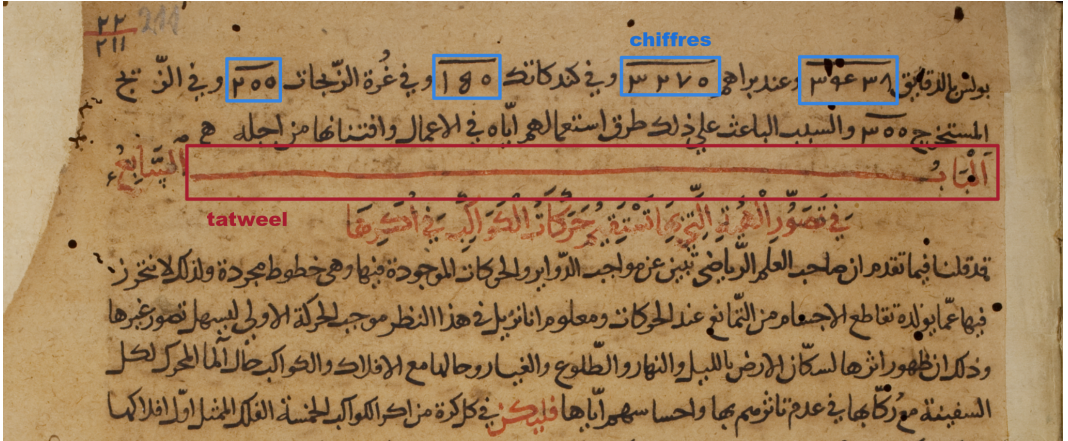 ٢٢
٢١١
211
chiffres
بولس بالدقايق ٣٤٣٨ وعند براهم ٣٢٧٠ وفي كندكاتك ١٥٠ وفي غُرة الزّيجات ٢٠٠ وفي الزّيج
المستخرج ٣٠٠ والسبب الباعث علي ذلك طرق استعمالهم ايّاه في الاعمال وافتنانها من اجله
اَلْبَابُ السَّابِعُ
tatweel
في تصوّر الْهيئة الّتي بها تستقيم حركات الكواكب في اُكرها
قد قلنا فيما تقدم ان صاحب العلم الرّياضي يبين عن مواجب الدّواير والحركات الموجودة فيها وهي خطوط مجردة ولذلك لا نتحرز
فيها عمّا يولده تقاطع الاجسام من التّمانع عند الحركات ومعلوم انا نزيل في هذا النظر موجب الحركة الاولي ليسهل تصور غيرها
وذلك ان ظهور اثرها لسكّان الارض بالليل والنهار والطّلوع والغيار وحالها مع الافلاك والكواكب حال الما المحرك لكل
السفينة مع ركّابها في عدم تاثرهم بها واحساسهم ايّاها فليكن في كل كرة من اكر الكواكب الخمسة الفلك الممثل اوّل افلاكها